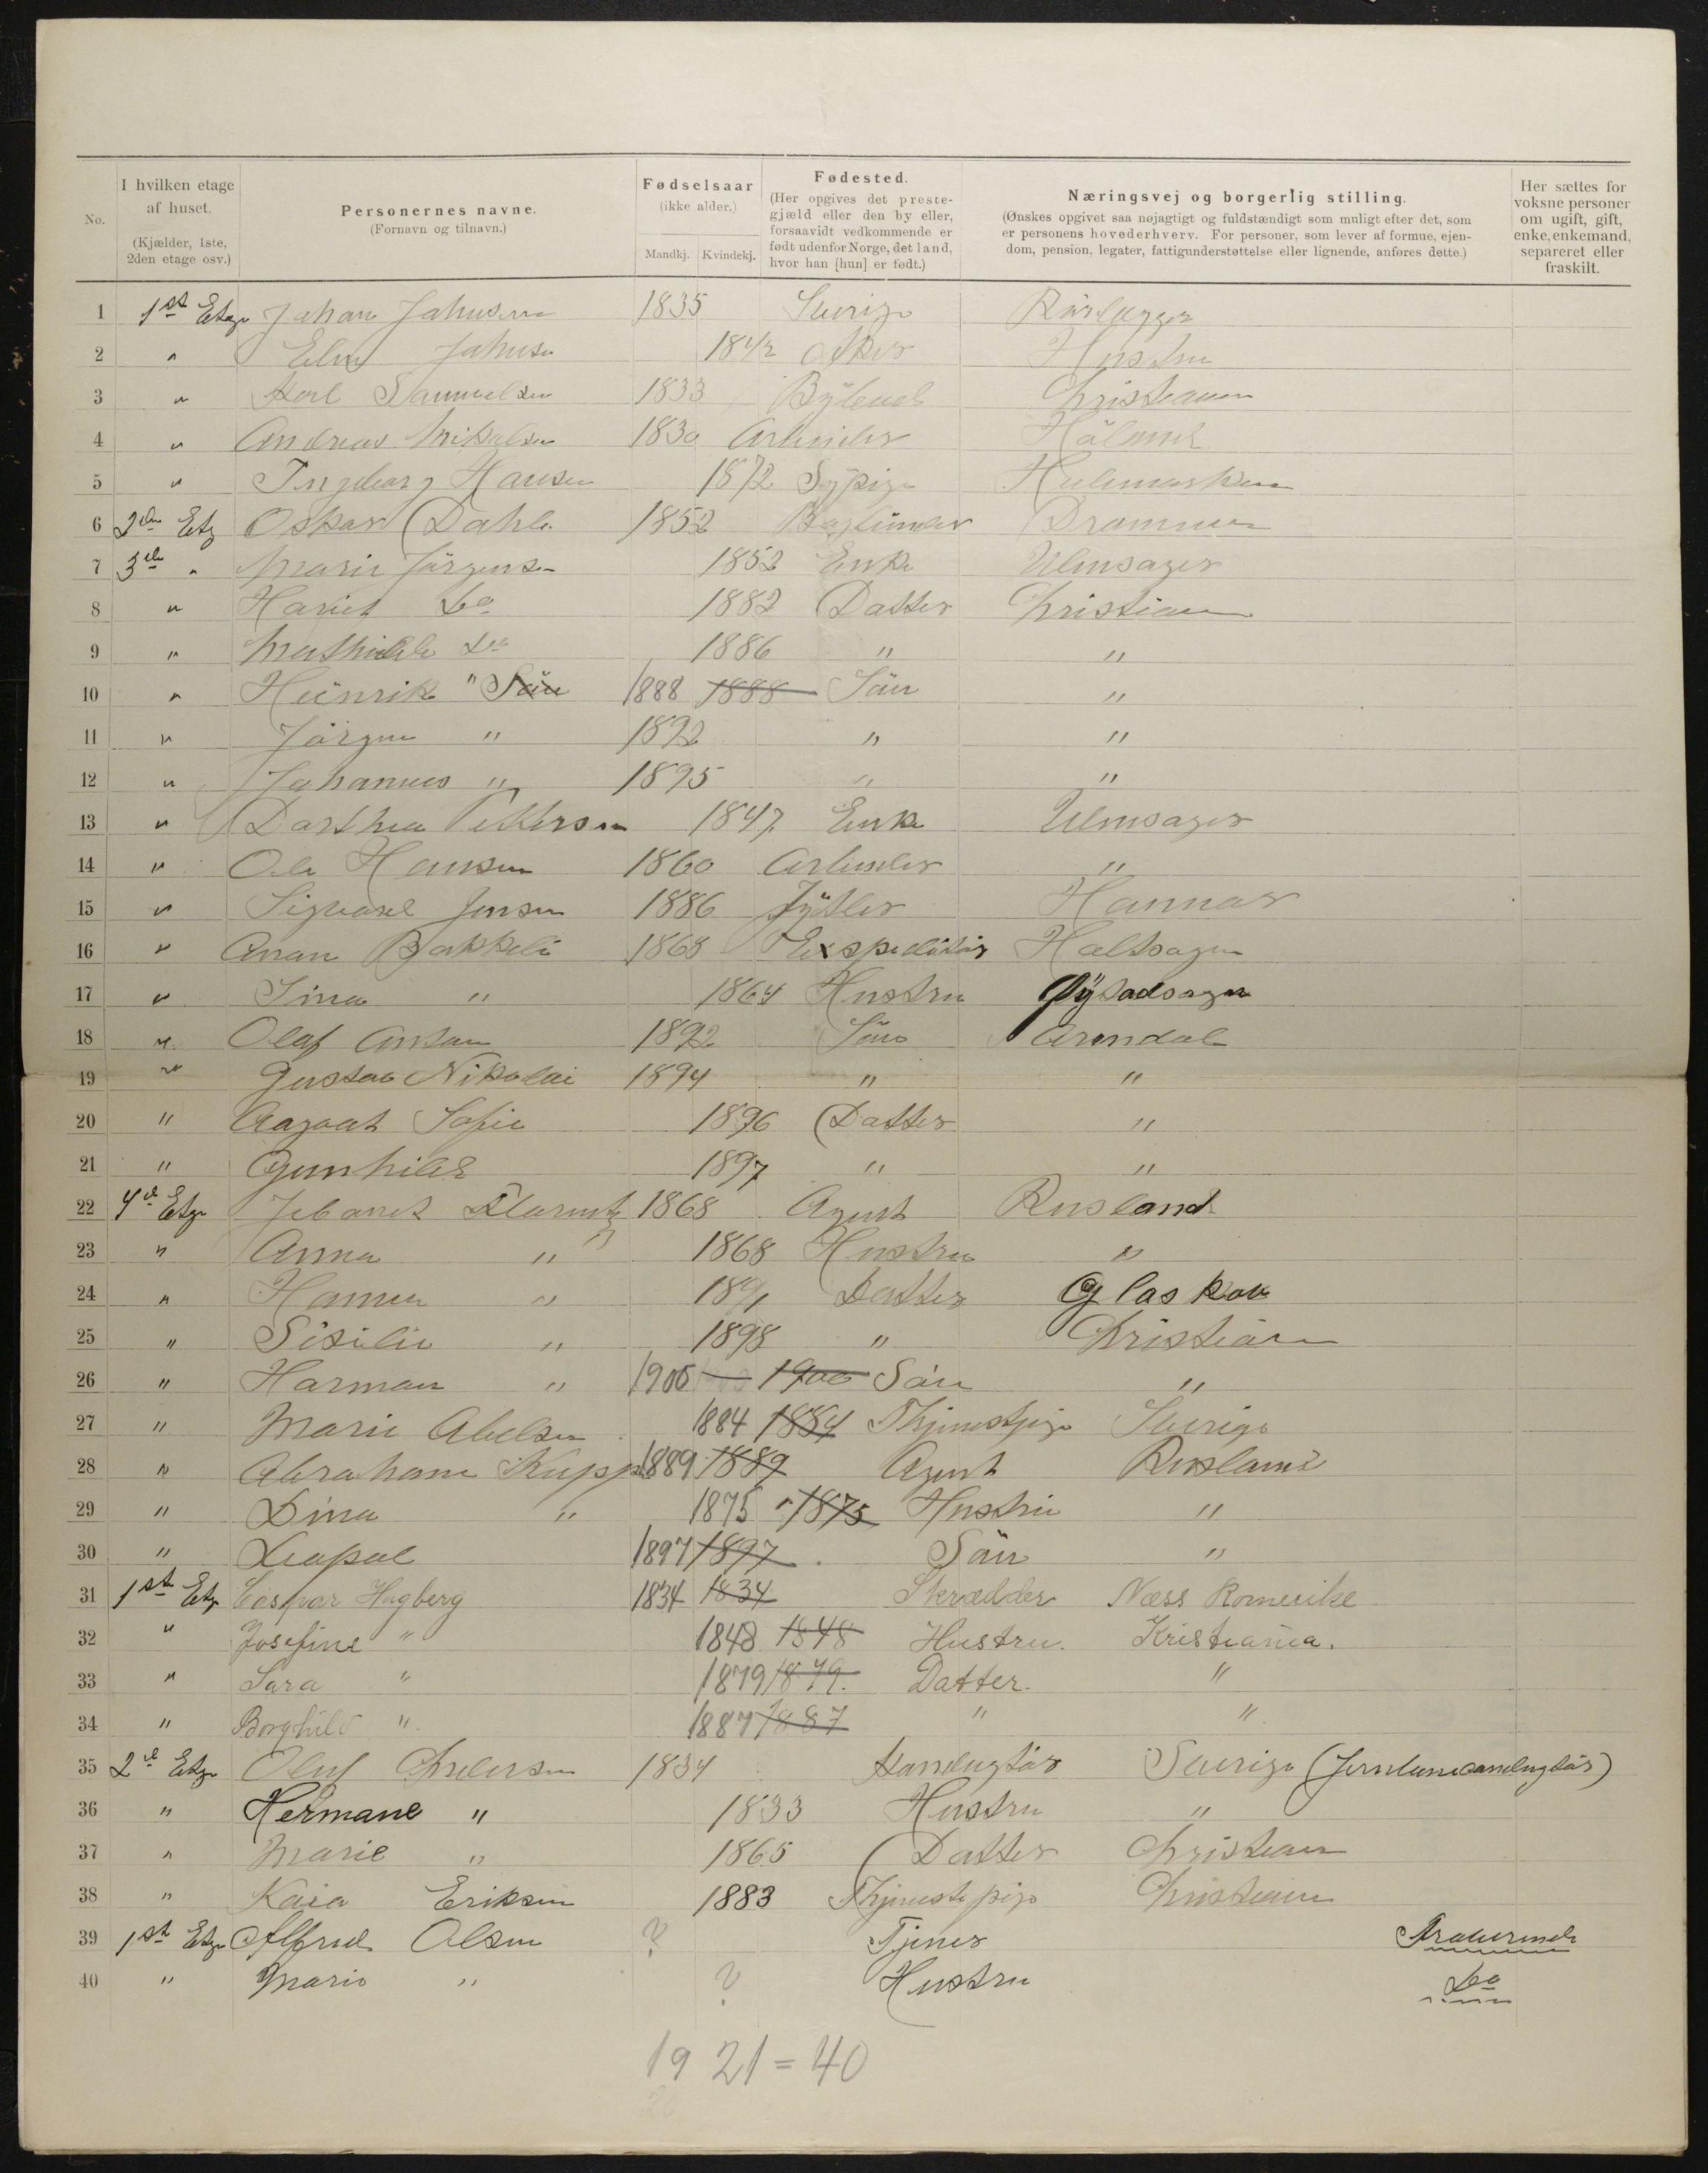 No.
I hvilken etage af huset.
(Kjælder, 1ste, 2den etage osv.)
Personernes navne.
(Fornavn og tilnavn.)
Fødselsaar
(ikke alder.)
Mandkj. Kvindekj.
Fødested.
(Her opgives det prestegjæld eller den by eller, forsaavidt vedkommende er født udenfor Norge, det land, hvor han [hun] er født.)
Næringsvej og borgerlig stilling.
(Ønskes opgivet saa nøjagtigt og fuldstændigt som muligt efter det, som er personens hovederhverv. For personer, som lever af formue, ejendom, pension, legater, fattigunderstøttelse eller lignende, anføres dette.)
Her sættes for voksne personer om ugift, gift, enke, enkemand, separeret eller fraskilt.
1 1st Etage Johan 1835 Sverige Rörlegger
2 " 1842 Asker Hustru
3 " Karl Samuelsen 1833 Christiania
4 " Andreas Mikalsen 1830 Arbeider
5 " Ingeborg Hansen 1872 Sypige
6 2den Etg Oskar Dahl 1852 Drammen
7 3de " Marie Jörgensen 1852 Enke Ulensager
8 " Do 1882 Datter Christiania
9 " Mathilde Do 1886 " "
10 " Heinrik " Sön 1888 1888 Sön "
11 " Jörgen " 1892 " "
12 " Johannes " 1895 " "
13 " Dorthea Pettersen 1847 Enke Ulensager
14 " Ole Hansen 1860 Arbeider "
15 " Sigvard Jensen 1886 Hammar
16 " Bakkeli 1868 Expeditör
17 " Sina " 1864 Hustru
18 " Olaf Anton 1892 Sön Arendal
19 " Gustav Nikolai 1894 " "
20 " Aagoat Sofie 1896 Datter "
21 " Gunhild 1897 " "
22 4d Etge 1868 Agent Rusland
23 " Anna " 1868 Hustru "
24 " " 1891 Datter Glaskov
25 " Sisilie " 1898 " Christiania
26 " Harman " 1900 1900 Sön "
27 " Marie Abelsen 1884 1884 Thjenestpige Sverige
28 " Abraham Kupp 1889 1889 Agent Rusland
29 " Dina " 1875 1875 Hustru "
30 " Leopol 1897 1897 Sön "
31 1ste Etg Caspar Hagberg 1834 1834 Skrædder Næss Romerike
32 " Josefine " 1848 1848 Hustru. Kristiania.
33 " Sara " 1879 1879. Datter. "
34 " Borghild " 1887 1887 " "
35 2d Etge Oluf 1834 Konduktör Sverige
36 " Hermane " 1833 Hustru "
37 " Marie " 1865 Datter Christiania
38 " Kaia Eriksen 1883 Thjenestepige Christiania
39 1st Etge Alfred Olsen ? Tjener Fraverende
40 " Marie " ? Hustru Do
19 21 = 40